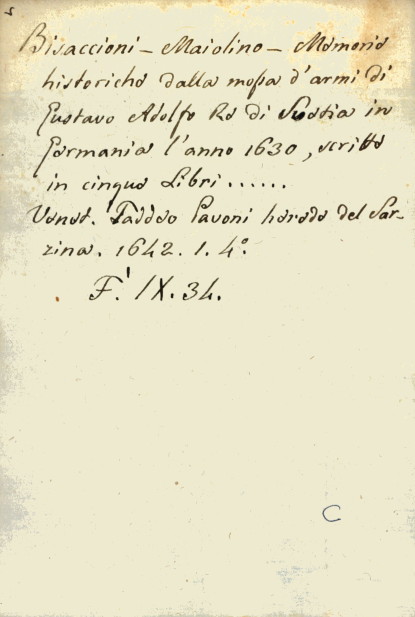 Bisaccioni - Maiolino - Memorie
historiche dalla mossa d'armi di
Gustavo Adolfo Re di Svetia in
Germania l'anno 1630, scritte
in cinque Libri......
Venet. Taddeo Pavoni herede del Sar-
zina. 1642. 1. 4º.
F. IX. 34.
C